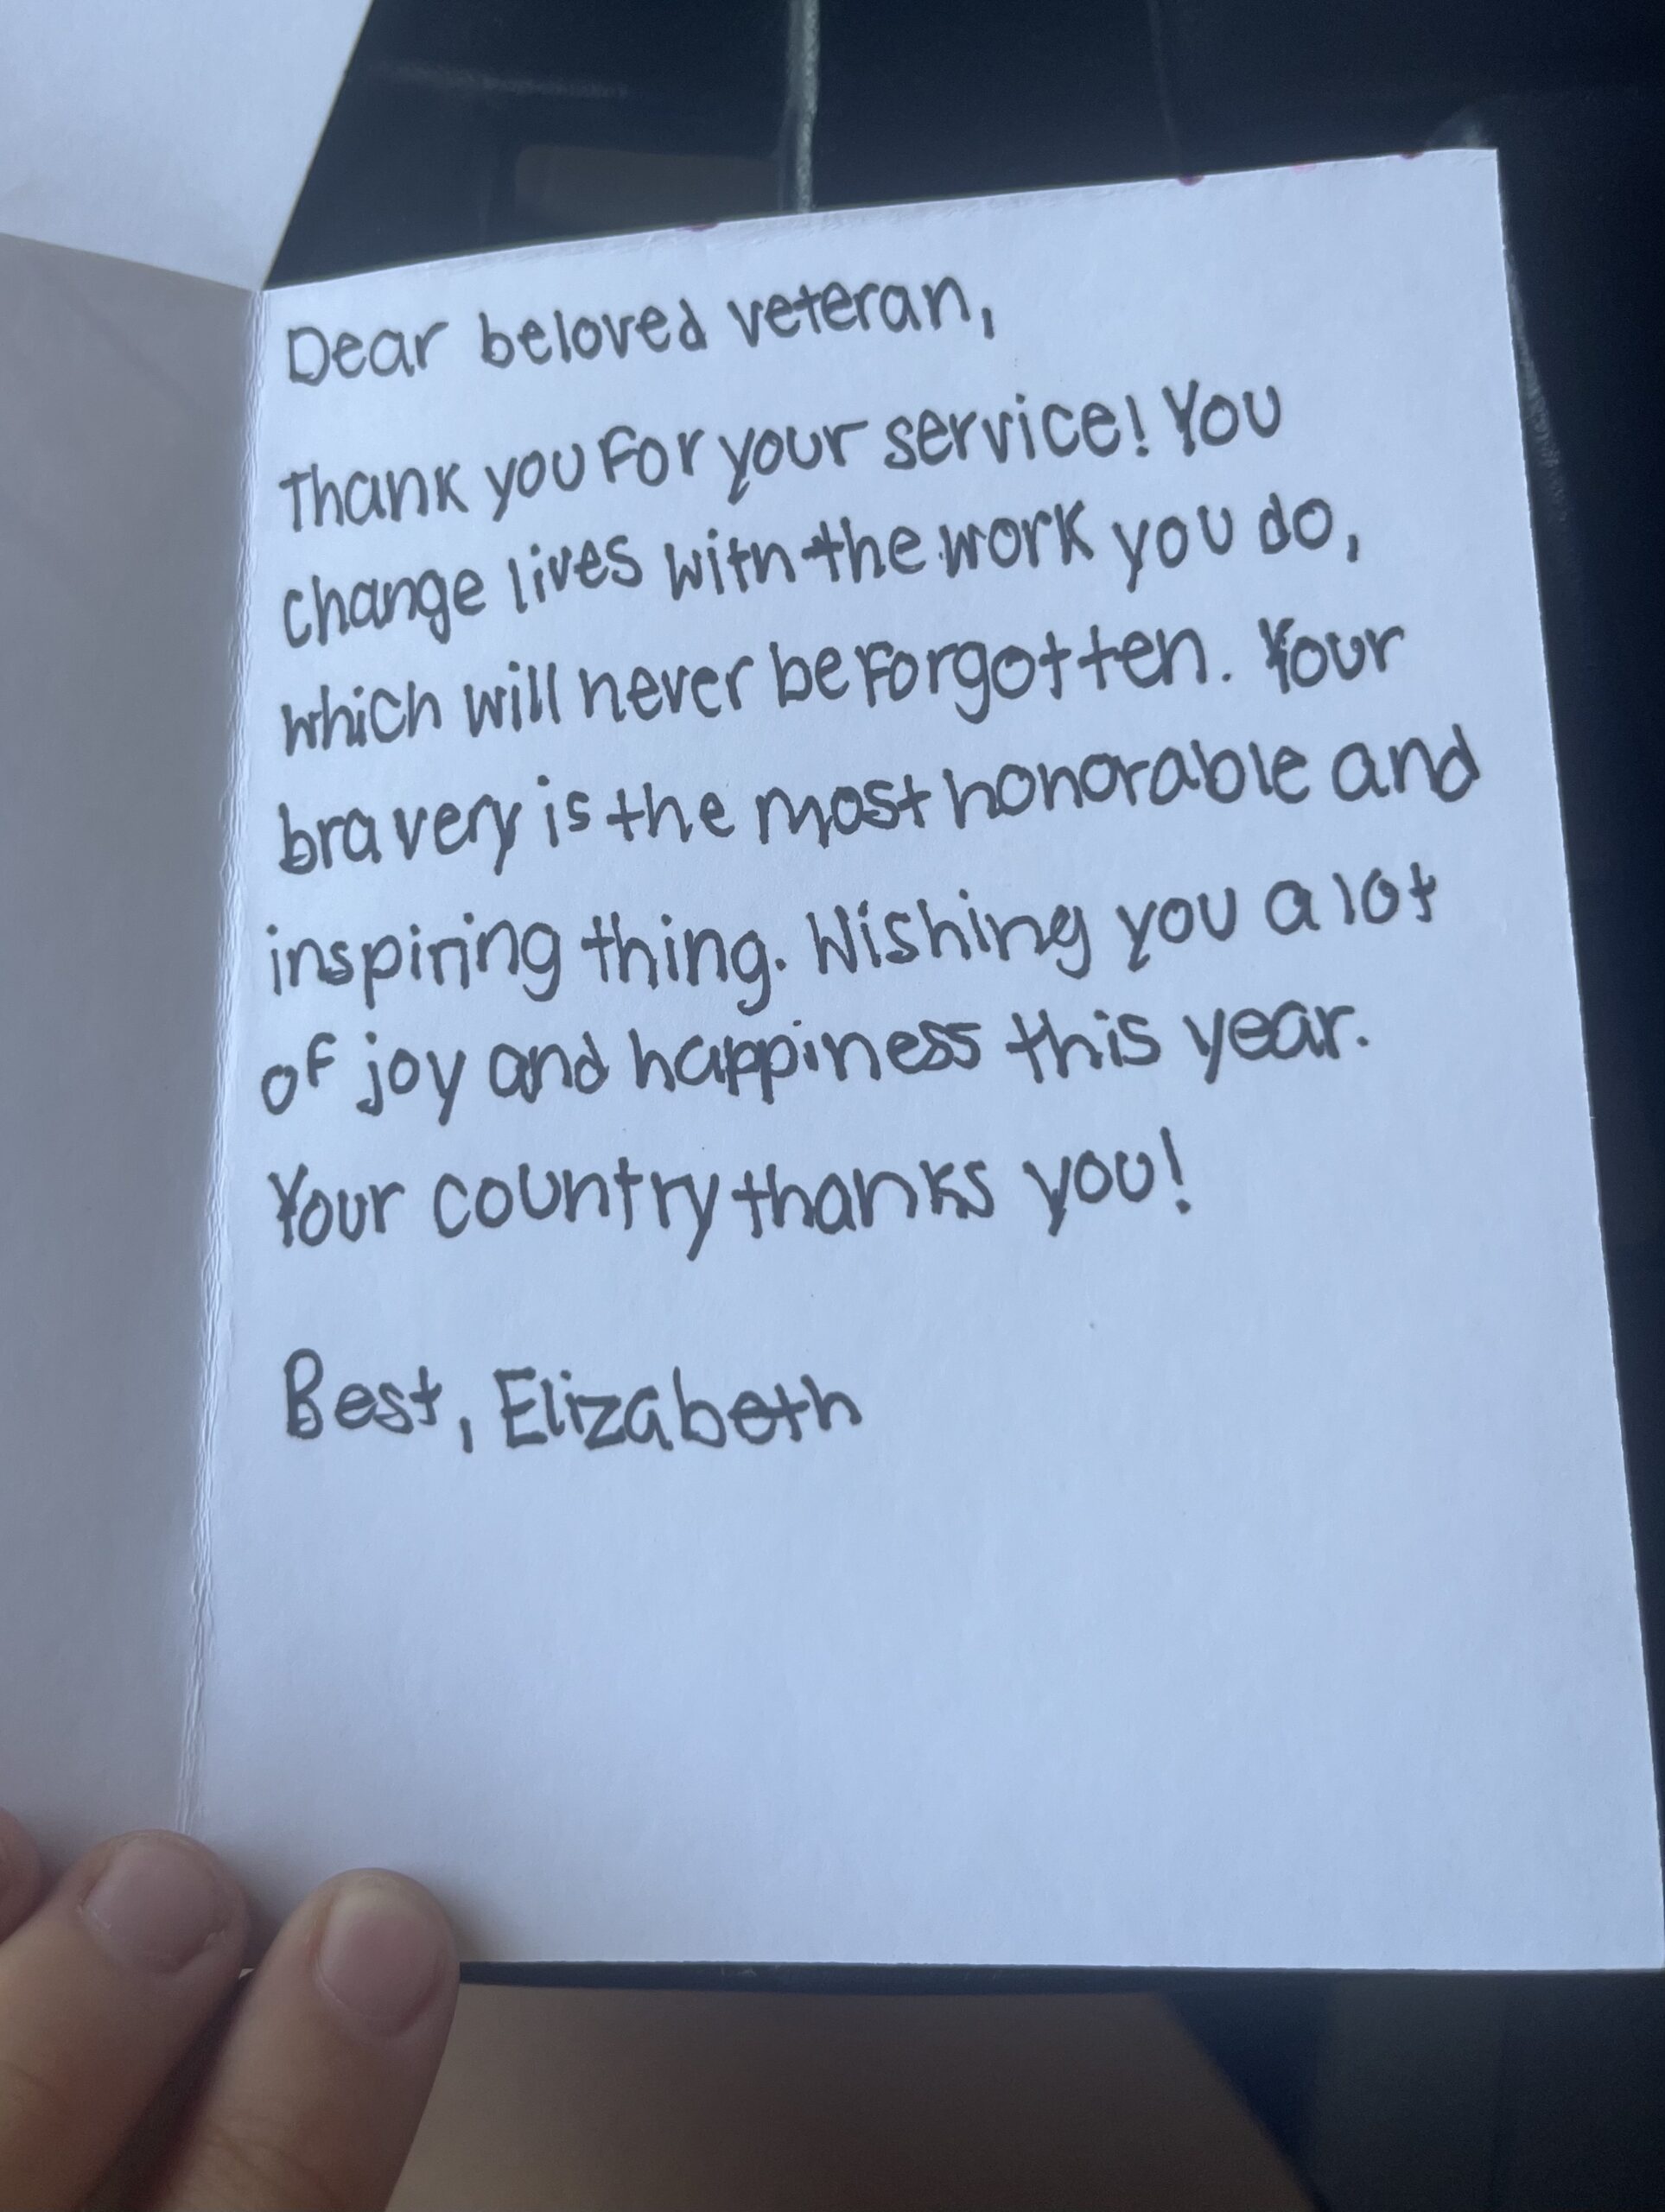 Dear beloved veteran,
Thank you for your service! You
change lives with the work you do,
which will never be forgotten. Your
bravery is the most honorable and
inspiring thing. Wishing you a lot
of joy and happiness this year.
Your country thanks you!
Best, Elizabeth